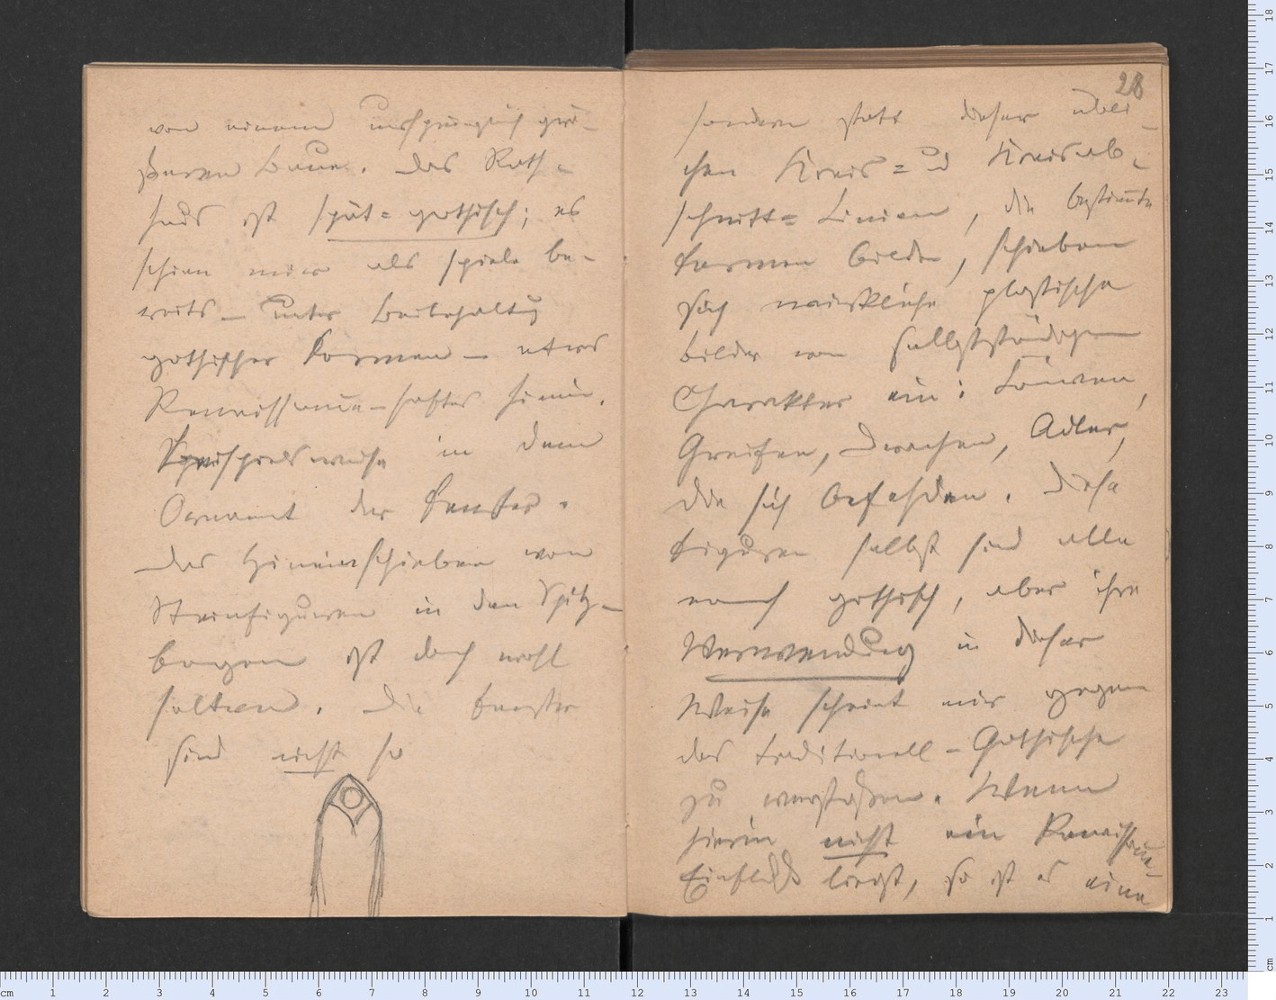 von einem ursprünglich grö-
ßeren Baue. Das Rath-
haus ist spät-gothisch; es
schien mir als spiele be-
reits – unter Beibehaltung
gothischer Formen – etwas
Renaissance-haftes hinein.
in dem
Ornament der Fenster.
Das Hineinschieben von
Steinfiguren in den Spitz-
bogen ist doch wohl
selten. Die Fenster
sind nicht so
28
sondern statt dieser übli-
chen Kreis = u Kreisab-
schnitt = Linien, die bestimmte
Formen bilden, schieben
sich wirkliche plastische
Bilder von selbstständigem
Charakter ein: Löwen,
Greifen, Drachen, Adler,
die sich befehden. Diese
Figuren selbst sind alle
noch gothisch, aber ihre
Verwendung in dieser
Weise scheint mir gegen
das traditionell-Gothische
zu verstoßen. Wenn
hierin nicht ein Renaissance-
Einfluß liegt, so ist es eine